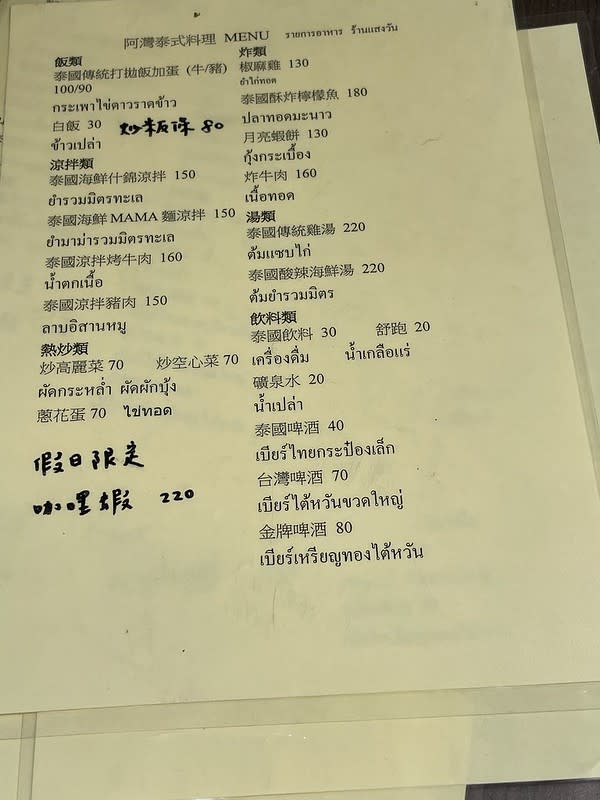 阿灣泰式料理 MENU รายการอาหาร ร้านแสงวัน
飯類
泰國傳統打拋飯加蛋 (牛/豬)
100/90
กระเพาไข่ดาวราดข้าว
白飯 30 炒粄條 80
ข้าวเปล่า
涼拌類
泰國海鮮什錦涼拌 150
ยำรวมมิตรทะเล
泰國海鮮 MAMA 麵涼拌 150
ยำมาม่ารวมมิตรทะเล
泰國涼拌烤牛肉 160
น้ำตกเนื้อ
泰國涼拌豬肉 150
ลาบอิสานหมู
熱炒類
炒高麗菜 70 炒空心菜 70
ผัดกระหล่ำ ผัดผักบุ้ง
蔥花蛋 70 ไข่ทอด
假日限定
咖哩蝦 220
炸類
椒麻雞 130
ยำไก่ทอด
泰國酥炸檸檬魚 180
ปลาทอดมะนาว
月亮蝦餅 130
กุ้งกระเบื้อง
炸牛肉 160
เนื้อทอด
湯類
泰國傳統雞湯 220
ต้มแซบไก่
泰國酸辣海鮮湯 220
ต้มยำรวมมิตร
飲料類
泰國飲料 30 舒跑 20
เครื่องดื่ม น้ำเกลือแร่
礦泉水 20
น้ำเปล่า
泰國啤酒 40
เบียร์ไทยกระป๋องเล็ก
台灣啤酒 70
เบียร์ไต้หวันขวดใหญ่
金牌啤酒 80
เบียร์เหรียญทองไต้หวัน